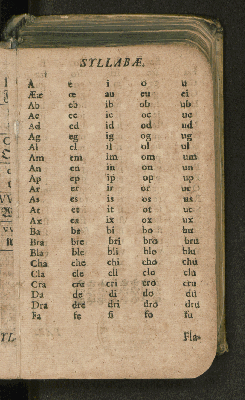 SYLLABÆ.
A e i o u
Æœ œ au eu ei
Ab eb ib ob ub
Ac ec ic oc uc
Ad ed id od ud
Ag eg ig og ug
Al el il ol ul
Am em im om um
An en in on un
Ap ep ip op up
Ar er ir or ur
As es is os us
At et it ot ut
Ax ex ix ox ux
Ba be bi bo bu
Bra bre bri bro bru
Bla ble bli blo blu
Cha che chi cho chu
Cla cle cli clo clu
Cra cre cri cro cru
Da de di do du
Dra dre dri dro dru
Fa fe fi fo fu
Fla-